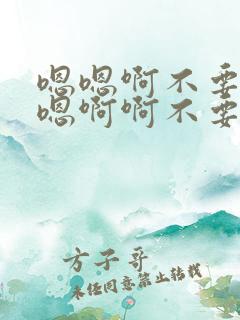 嗯嗯啊不要
嗯啊啊不要
方子哥
未经同意禁止转载